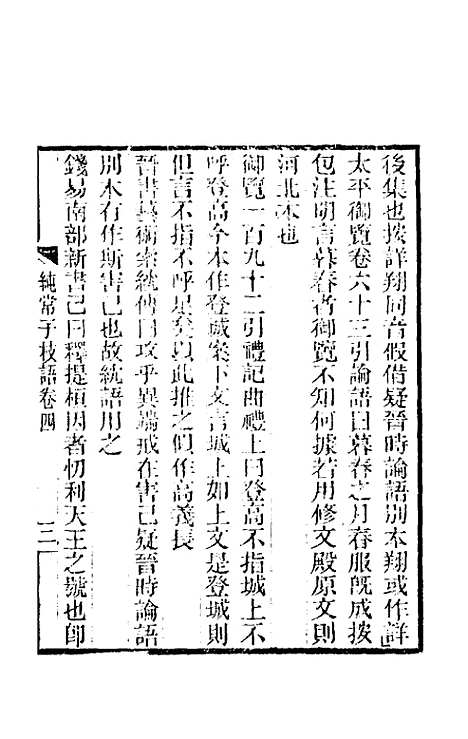 後集也按詳翔同音假借疑晉時論語別本翔或作詳
太平御覽卷六十三引論語曰暮春之月春服既成按
包注明言暮春者御覽不知何據若用修文殿原文則
河北本也
御覽一百九十二引禮記曲禮上曰登高不指城上不
呼登高今本作登城案下文言城上如上文是登城則
但言不指不呼足矣以此推之似作高義長
晉書綦衛索統傳曰攻乎異端戒在害己疑晉時論語
別本有作斯害己也故統語用之
錢易南部新書己曰釋提桓因者忉利天王之號也即
純常子枝語卷四